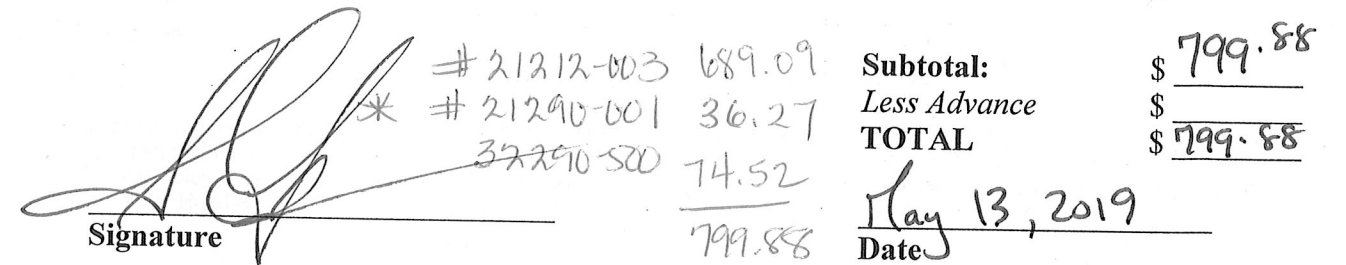 # 21212-003 689.09
* # 21290-001 36.27
32290-500 74.52
799.88
Signature
Subtotal: $ 799.88
Less Advance $
TOTAL $ 799.88
May 13, 2019
Date